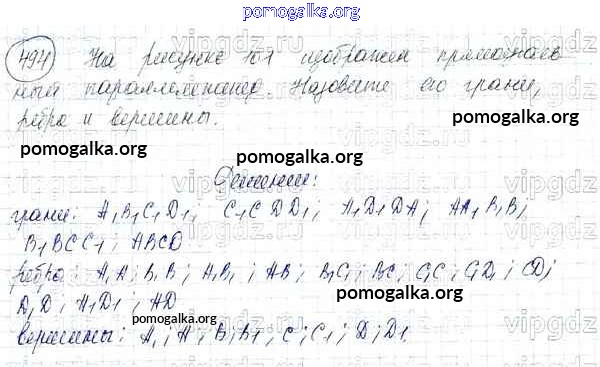 pomogalka.org
494 На рисунке 101 изображен прямоуголь
ный параллелепипед. Назовите его грани,
ребра и вершины.
pomogalka.org
pomogalka.org
pomogalka.org
Решение:
грани: A₁B₁C₁D₁; C₁C DD₁; A₁D₁DA; AA₁B₁B;
B₁BCC₁; ABCD
pomogalka.org
ребра: A₁A; B₁B; A₁B₁; AB; B₁C₁; BC; C₁C; C₁D₁; CD;
D₁D; A₁D₁; AD
pomogalka.org
вершины: A₁; A; B; B₁; C; C₁; D; D₁
pomogalka.org
pomogalka.org